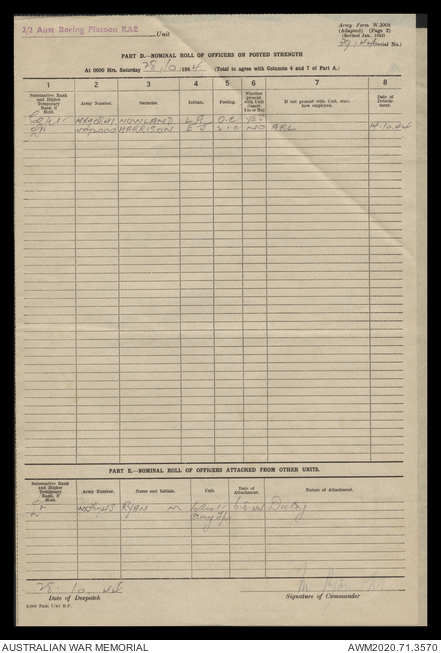 2/2 Aust Boring Platoon RAE
Unit
Army Form W.3008
(Adapted) (Page 2)
(Revised Jan., 1943)
(Serial No.)
PART D.—NOMINAL ROLL OF OFFICERS ON POSTED STRENGTH
At 0600 Hrs. Saturday 28/10 1944 (Total to agree with Columns 4 and 7 of Part A.)
1 2 3 4 5 6 7 8
Substantive Rank and Higher Temporary Rank if Held. Army Number. Surname. Initials. Posting. Whether present with Unit (Insert Yes or No) If not present with Unit, state how employed. Date of Detachment.
NOWLAND L A O.C YES
HARRISON E J 2.i.c NO
PART E.—NOMINAL ROLL OF OFFICERS ATTACHED FROM OTHER UNITS.
Substantive Rank and Higher Temporary Rank, if Held. Army Number. Name and Initials. Unit. Date of Attachment. Nature of Attachment.
RYAN M 6.8.44 Duty
28. 10. 44
Date of Despatch
Signature of Commander
AUSTRALIAN WAR MEMORIAL
AWM2020.71.3570